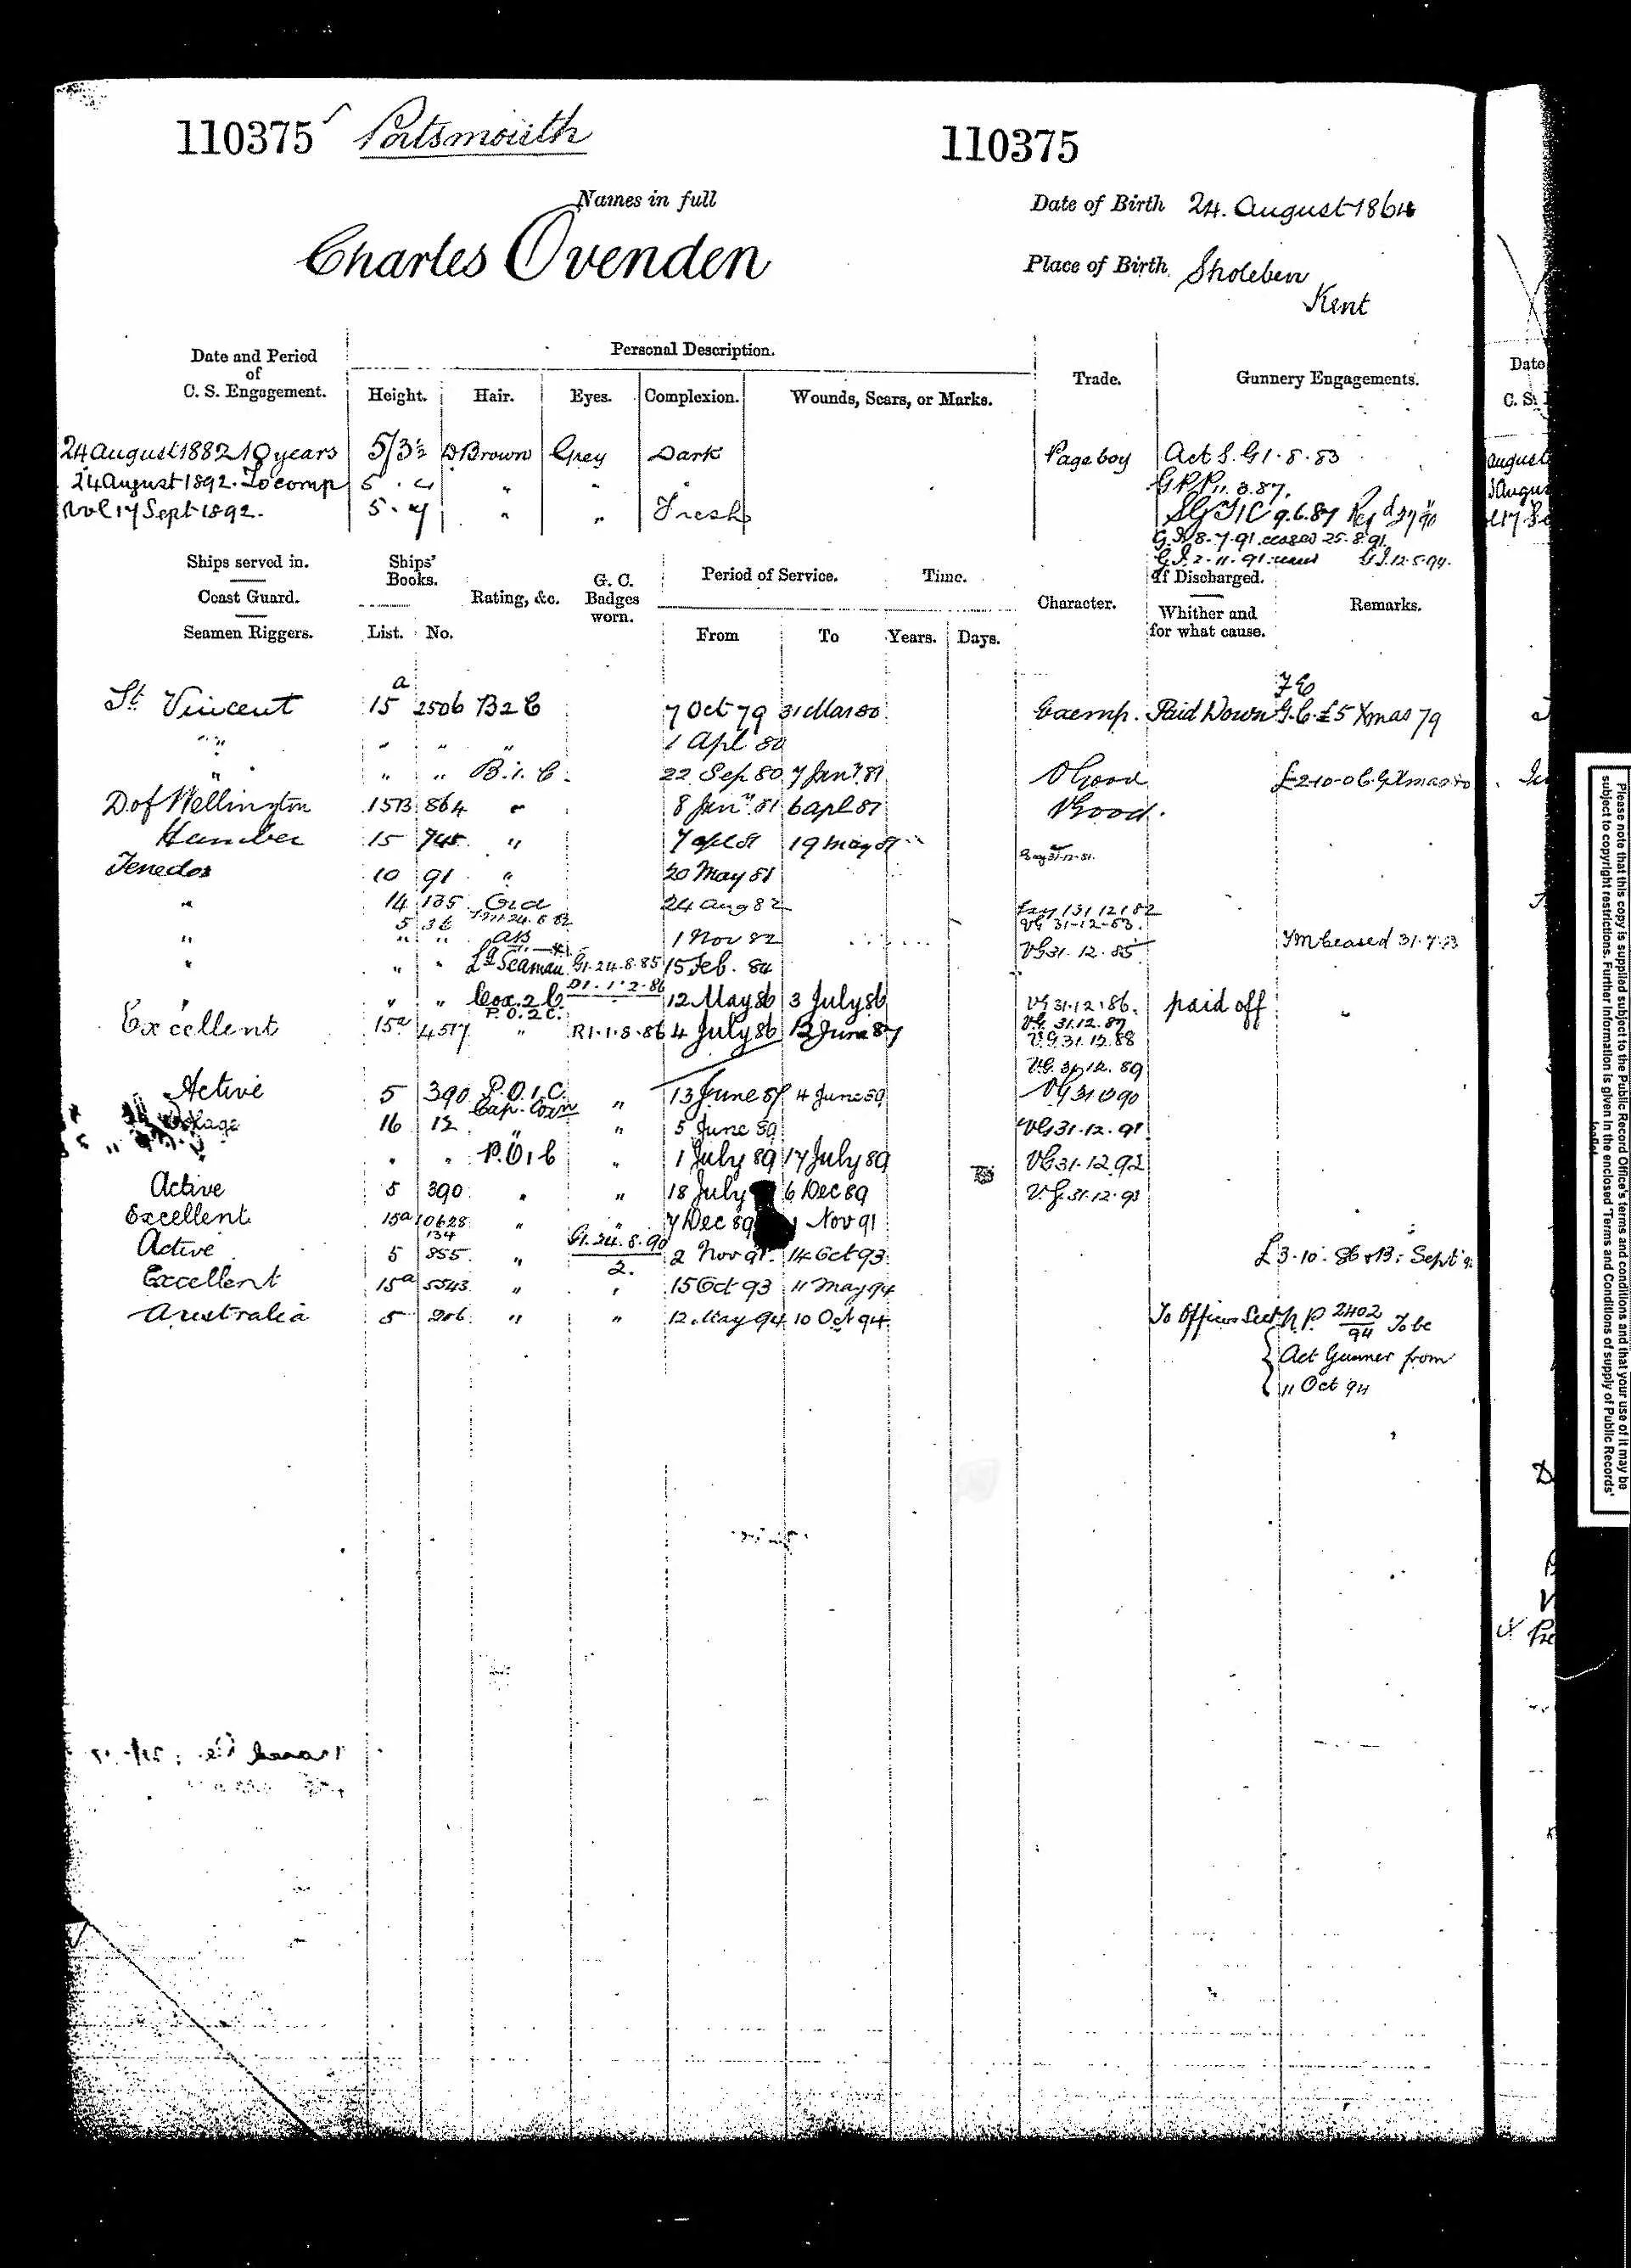 110375 Portsmouth 110375
Names in full
Charles Ovenden
Date of Birth 24. August 1864
Place of Birth Sholeben
Kent
Date and Period
of
C. S. Engagement.
Personal Description.
Height. Hair. Eyes. Complexion. Wounds, Scars, or Marks.
Trade.
Gunnery Engagements.
24 August 1882 10 years 5/3½ D Brown Grey Dark Page boy Act S. G 1.8.83
24 August 1892. To comp 5 . 4 " " " G.P.P 11.3.87.
Vol 17 Sept 1892. 5 . 4 " " Fresh SGT1C 9.6.87
G.I. 8.7.91 ceased 25.8.91.
G.I. 2.11.91 G.I. 12.5.94.
Ships served in.
Coast Guard.
Seamen Riggers.
Ships' Books.
List. No.
Rating, &c.
G. C. Badges worn.
Period of Service.
From To
Time.
Years. Days.
Character.
If Discharged.
Whither and for what cause.
Remarks.
St. Vincent 15a 2506 B2C 7 Oct 79 31 Mar 80 Exemp. Paid Down G.C. £5 Xmas 79
" " " " 1 Apl 80
" " " B.1.C. 22 Sep 80 7 Jany. 81 V Good £2-10-0
D of Wellington 15B 864 " 8 Jany. 81 6 apl 81 V Good.
Humber 15 745 " 7 apl 81 19 may 81
Tenedos 10 91 " 20 May 81
" 14 135 Ord 24 Aug 82
" 5 36 AB 1 Nov 82 VG 31-12-83.
" " " Lg Seaman G1.24.8.85 15 Feb. 84 VG 31.12.85
" " " Cox. 2 C D1.1.2.86 12 May 86 3 July 86 VG 31.12.86. paid off
P.O. 2 C.
Excellent 15a 4517 " R1.1.8.86 4 July 86 12 June 87 V.G. 31.12.87
V.G. 31.12.88
V.G. 31.12.89
Active 5 390 P.O.1.C. " 13 June 87 4 June 89 VG 31 90
16 12 Cap. Coxn " 5 June 89 VG 31.12.91
" " P.O.1.C " 1 July 89 17 July 89 VG 31.12.92
Active 5 390 " " 18 July 6 Dec 89 V.G. 31.12.93
Excellent 15a 10628 " " 7 Dec 89 1 Nov 91
Active 5 134 855 " G1.24.8.90 2. 2 Nov 91. 14 Oct 93
Excellent 15a 5543 " " 15 Oct 93 11 May 94
Australia 5 206 " " 12 May 94 10 Oct 94 To Officers Sect N.P. 2402/94 To be
Act Gunner from
11 Oct 94
Please note that this copy is supplied subject to the Public Record Office's terms and conditions and that your use of it may be
subject to copyright restrictions. Further information is given in the enclosed 'Terms and Conditions of supply of Public Records'